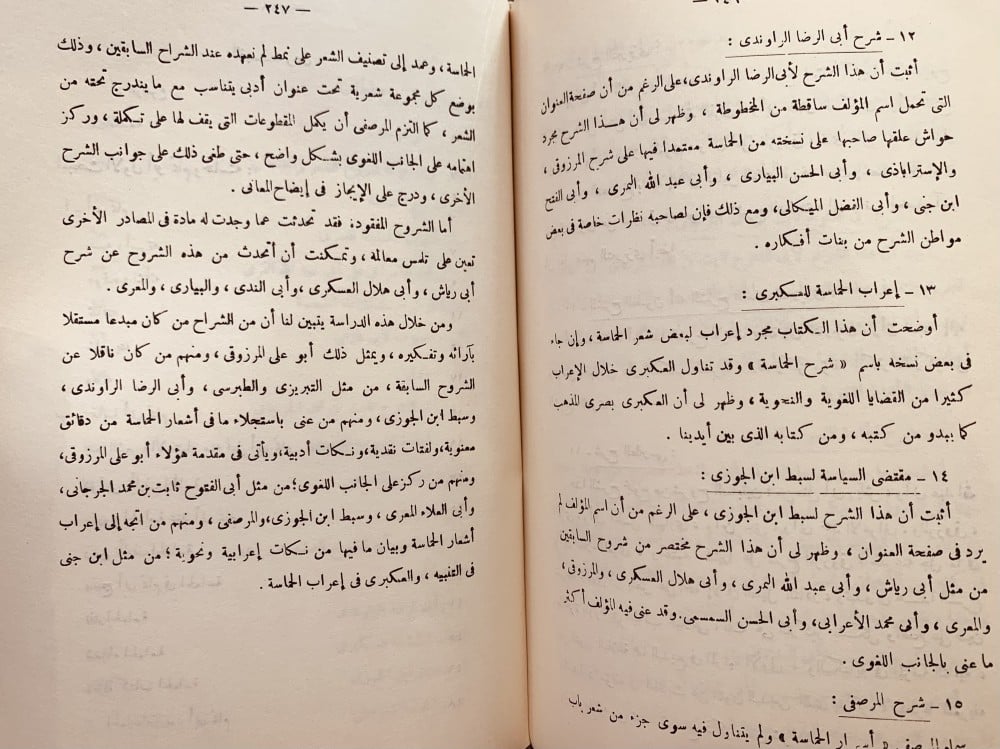 ١٢ - شرح أبى الرضا الراوندى :
أثبت أن هذا الشرح لأبى الرضا الراوندى، على الرغم من أن صفحة العنوان
التى تحمل اسم المؤلف ساقطة من المخطوطة ، وظهر لى أن هـذا الشرح مجرد
حواش علقها صاحبها على نسخته من الحماسة معتمدا فيها على شرح المرزوقى ،
والإستراباذى ، وأبى الحسن البيارى ، وأبى عبد الله النمرى ، وأبى الفتح
ابن جنى ، وأبى الفضل الميكالى، ومع ذلك فإن لصاحبه نظرات خاصة فى بعض
مواطن الشرح من بنات أفـكاره .
١٣ - إعراب الحماسة للعـكبرى :
أوضحت أن هذا الـكتاب مجرد إعراب لبعض شعر الحماسة، وإن جاء
فى بعض نسخه باسم « شرح الحماسة » وقد تناول العـكبرى خلال الإعراب
كثيرا من القضايا اللغوية والنحوية ، وظهر لى أن العـكبرى بصرى المذهب
كما يبدو من كتبه ، ومن كتابه الذى بين أيدينا .
١٤ - مقتضى السياسة لسبط ابن الجوزى :
أثبت أن هذا الشرح لسبط ابن الجوزى ، على الرغم من أن اسم المؤلف لم
يرد فى صفحة العنوان ، وظهر لى أن هذا الشرح مختصر من شروح السابقين
من مثل أبى رياش ، وأبى عبد الله النمرى ، وأبى هلال العسكرى ، والمرزوقى ،
والمعرى ، وأبى محمد الأعرابى، وأبى الحسن السمسمى. وقد عنى فيه المؤلف أكثر
ما عنى بالجانب اللغوى .
١٥ - شرح المرصفى :
المرصفى « أسـرار الحماسة » ولم يتناول فيه سوى جزء من شعر باب
— ٢٤٧ —
الحماسة ، وعمد إلى تصنيف الشعر على نمط لم نعهده عند الشراح السابقين ، وذلك
بوضع كل مجموعة شعرية تحت عنوان أدبى يتناسب مع ما يندرج تحته من
الشعر ، كما التزم المرصفى أن يكمل المقطوعات التى يقف لها على تـكملة ، وركز
اهتمامه على الجانب اللغوى بشـكل واضح ، حتى طغى ذلك على جوانب الشرح
الأخرى ، ودرج على الإيجاز فى إيضاح المعانى .
أما الشروح المفقودة فقد تحدثت عما وجدت له مادة فى المصادر الأخرى
تعين على تلمس معالمه ، وتمـكنت أن أتحدث من هذه الشروح عن شرح
أبى رياش ، وأبى هلال العسكرى ، وأبى الندى ، والبيارى ، والمعرى .
ومن خلال هذه الدراسة يتبين لنا أن من الشراح من كان مبدعا مستقلا
بآرائه وتفـكيره ، ويمثل ذلك أبو على المرزوقى ، ومنهم من كان ناقلا عن
الشروح السابقة ، من مثل التبريزى والطبرسى ، وأبى الرضا الراوندى ،
وسبط ابن الجوزى، ومنهم من عنى باستجلاء ما فى أشعار الحماسة من دقائق
معنوية، ولفتات نقدية، ونـكات أدبية، ويأتى فى مقدمة هؤلاء أبو على المرزوقى،
ومنهم من ركز على الجانب اللغوى؛ من مثل أبى الفتوح ثابت بن محمد الجرجانى،
وأبى العلاء المعرى ، وسبط ابن الجوزى، والمرصفى ، ومنهم من اتجه إلى إعراب
أشعار الحماسة وبيان ما فيها من نـكات إعرابية ونحوية ؛ من مثل ابن جنى
فى التنبيه ، والعـكبرى فى إعراب الحماسة .